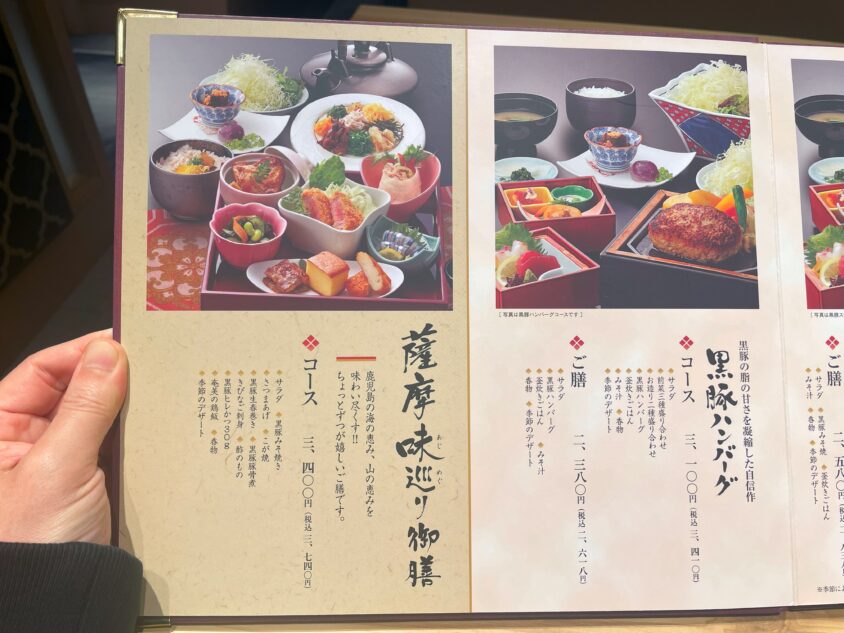 薩摩味巡り御膳
あじ めぐ
鹿児島の海の恵み、山の恵みを
味わい尽くす!!
ちょっとずつが嬉しいご膳です。
コース 三、四〇〇円(税込 三、七四〇円)
サラダ ◆黒豚みそ焼き
さつまあげ ◆こが焼
黒豚生春巻き ◆黒豚豚骨煮
きびなご刺身 ◆酢のもの
黒豚ヒレかつ30g
奄美の鶏飯 ◆香物
季節のデザート
[写真は黒豚ハンバーグコースです]
黒豚の脂の甘さを凝縮した自信作
黒豚ハンバーグ
コース 三、一〇〇円(税込 三、四一〇円)
サラダ
前菜三種盛り合わせ
お造り二種盛り合わせ
黒豚ハンバーグ
釜炊きごはん
みそ汁 ◆香物
季節のデザート
ご膳 二、三八〇円(税込 二、六一八円)
サラダ
黒豚ハンバーグ
釜炊きごはん ◆みそ汁
香物 ◆季節のデザート
[写真は黒豚
ご膳 二、五八〇円
サラダ ◆黒豚みそ焼
みそ汁 ◆釜炊きごはん
香物 ◆季節のデザート
※季節によ